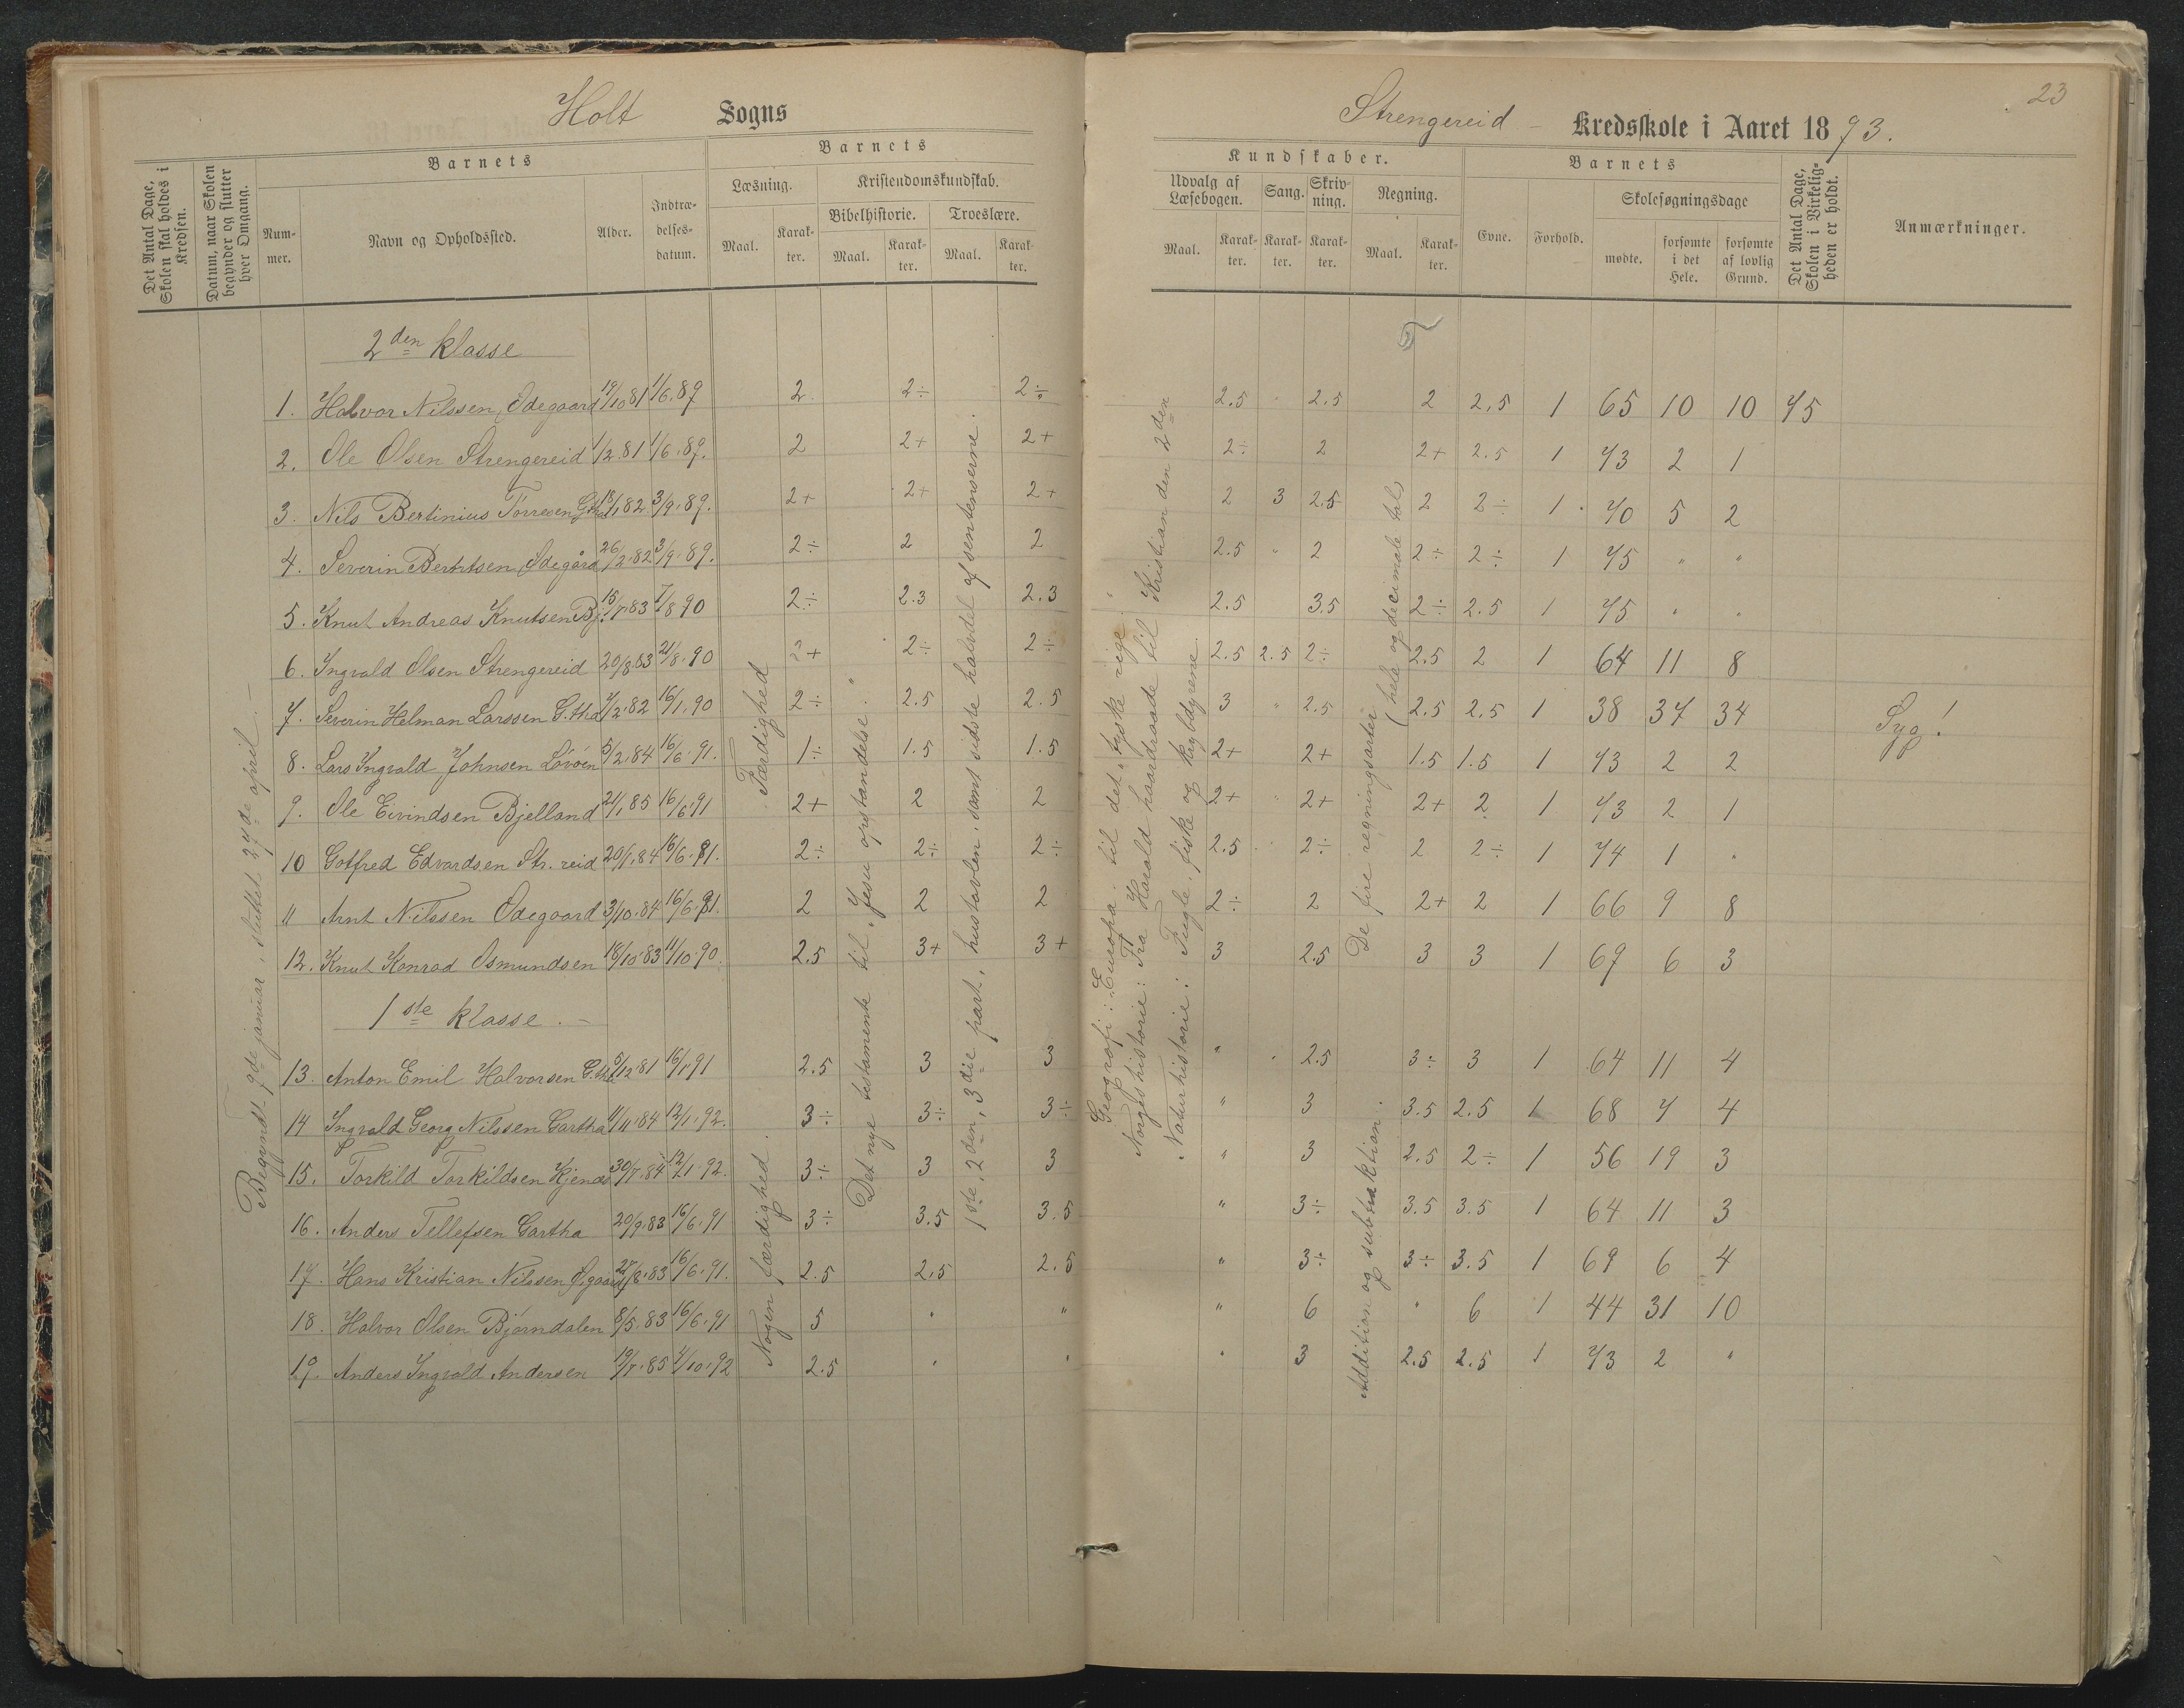 Holt Sogns
Det Antal Dage, Skolen skal holdes i Kredsen.
Datum, naar Skolen begynder og slutter hver Omgang.
Barnets
Nummer.
Navn og Opholdssted.
Alder.
Indtrædelsesdatum.
Barnets
Læsning.
Maal.
Karakter.
Kristendomskundskab.
Bibelhistorie.
Maal.
Karakter.
Troeslære.
Maal.
Karakter.
Begyndt 9de januar, sluttet 27de april.
Færdighed
Nogen færdighed.
Det nye testamente til "Jesu opstandelse".
1ste, 2den, 3die part, hustavlen, samt sidste halvdel af sentenserne.
2den klasse
1. Halvor Nilssen, Ødegaard 19/10 81 1/6.89 2 2÷ 2÷
2. Ole Olsen Strengereid 1/2.81 1/6.89. 2 2+ 2+
3. Nils Bertinius Torresen G.tha 18/1 82 3/9.89. 2+ 2+ 2+
4. Severin Berntsen, Ødegård 26/2.82 3/9.89. 2÷ 2 2
5. Knut Andreas Knutsen Bj. 15/7.83 7/8 90 2÷ 2.3 2.3
6. Ingvald Olsen Strengereid 20/8.83 21/8.90 2+ 2÷ 2÷
7. Severin Helman Larssen G.tha 7/2.82 16/1.90 2÷ 2.5 2.5
8. Lars Ingvald Johnsen Lövöen 5/2.84 16/6.91. 1÷ 1.5 1.5
9. Ole Eivindsen Bjelland 21/1 85 16/6.91 2+ 2 2
10 Gotfred Edvardsen Str.reid 20/1.84 16/6.91. 2÷ 2÷ 2÷
11 Arnt Nilssen Ødegaard 3/10.84 16/6.91. 2 2 2
12. Knut Konrad Osmundsen 18/10.83 11/10.90. 2.5 3+ 3+
1ste klasse.
13. Anton Emil Halvorsen G.tha 5/12.81 16/1 91 2.5 3 3
14 Ingvald Georg Nilssen Gartha 11/11.84 12/1.92. 3÷ 3÷ 3÷
15. Torkild Torkildsen Kjenås 30/7.84 12/1.92. 3÷ 3 3
16. Anders Tellefsen Gartha 20/9.83 16/6.91 3÷ 3.5 3.5
17. Hans Kristian Nilssen Ø.gaard 27/8.83 16/6.91. 2.5 2.5 2.5
18. Halvor Olsen Björndalen 8/5.83 16/6.91 5 " "
19. Anders Ingvald Andersen 19/7.85 7/10.92 2.5 " "
23
Strengereid - Kredsskole i Aaret 1893.
Kundskaber.
Udvalg af Læsebogen.
Maal.
Karakter.
Sang.
Karakter.
Skrivning.
Karakter.
Regning.
Maal.
Karakter.
Barnets
Evne.
Forhold.
Skolesøgningsdage
mødte.
forsømte i det Hele.
forsømte af lovlig Grund.
Det Antal Dage, Skolen i Virkeligheden er holdt.
Anmærkninger.
Geografi: Europa til det "tyske rige".
Norges historie: Fra Harald haardraade til Kristian den 2den
Naturhistorie: Fugle, fiske og krybdyrene.
De fire regningsarter (hele og decimale tal)
Addition og subtraktion.
2.5 " 2.5 2 2.5 1 65 10 10 75
2÷ 2 2+ 2.5 1 73 2 1
2 3 2.5 2 2÷ 1 70 5 2
2.5 " 2 2÷ 2÷ 1 75 " "
2.5 3.5 2÷ 2.5 1 75 " "
2.5 2.5 2÷ 2.5 2 1 64 11 8
3 " 2.5 2.5 2.5 1 38 37 34 Syg!
2+ 2+ 1.5 1.5 1 73 2 2
2+ " 2+ 2+ 2 1 73 2 1
2.5 2÷ 2 2÷ 1 74 1 "
2÷ 2 2+ 2 1 66 9 8
3 2.5 3 3 1 69 6 3
" " 2.5 3÷ 3 1 64 11 4
" 3 3.5 2.5 1 68 7 4
" 3 2.5 2÷ 1 56 19 3
" 3÷ 3.5 3.5 1 64 11 3
" 3÷ 3÷ 3.5 1 69 6 4
" 6 " 6 1 44 31 10
" 3 2.5 2.5 1 73 2 "